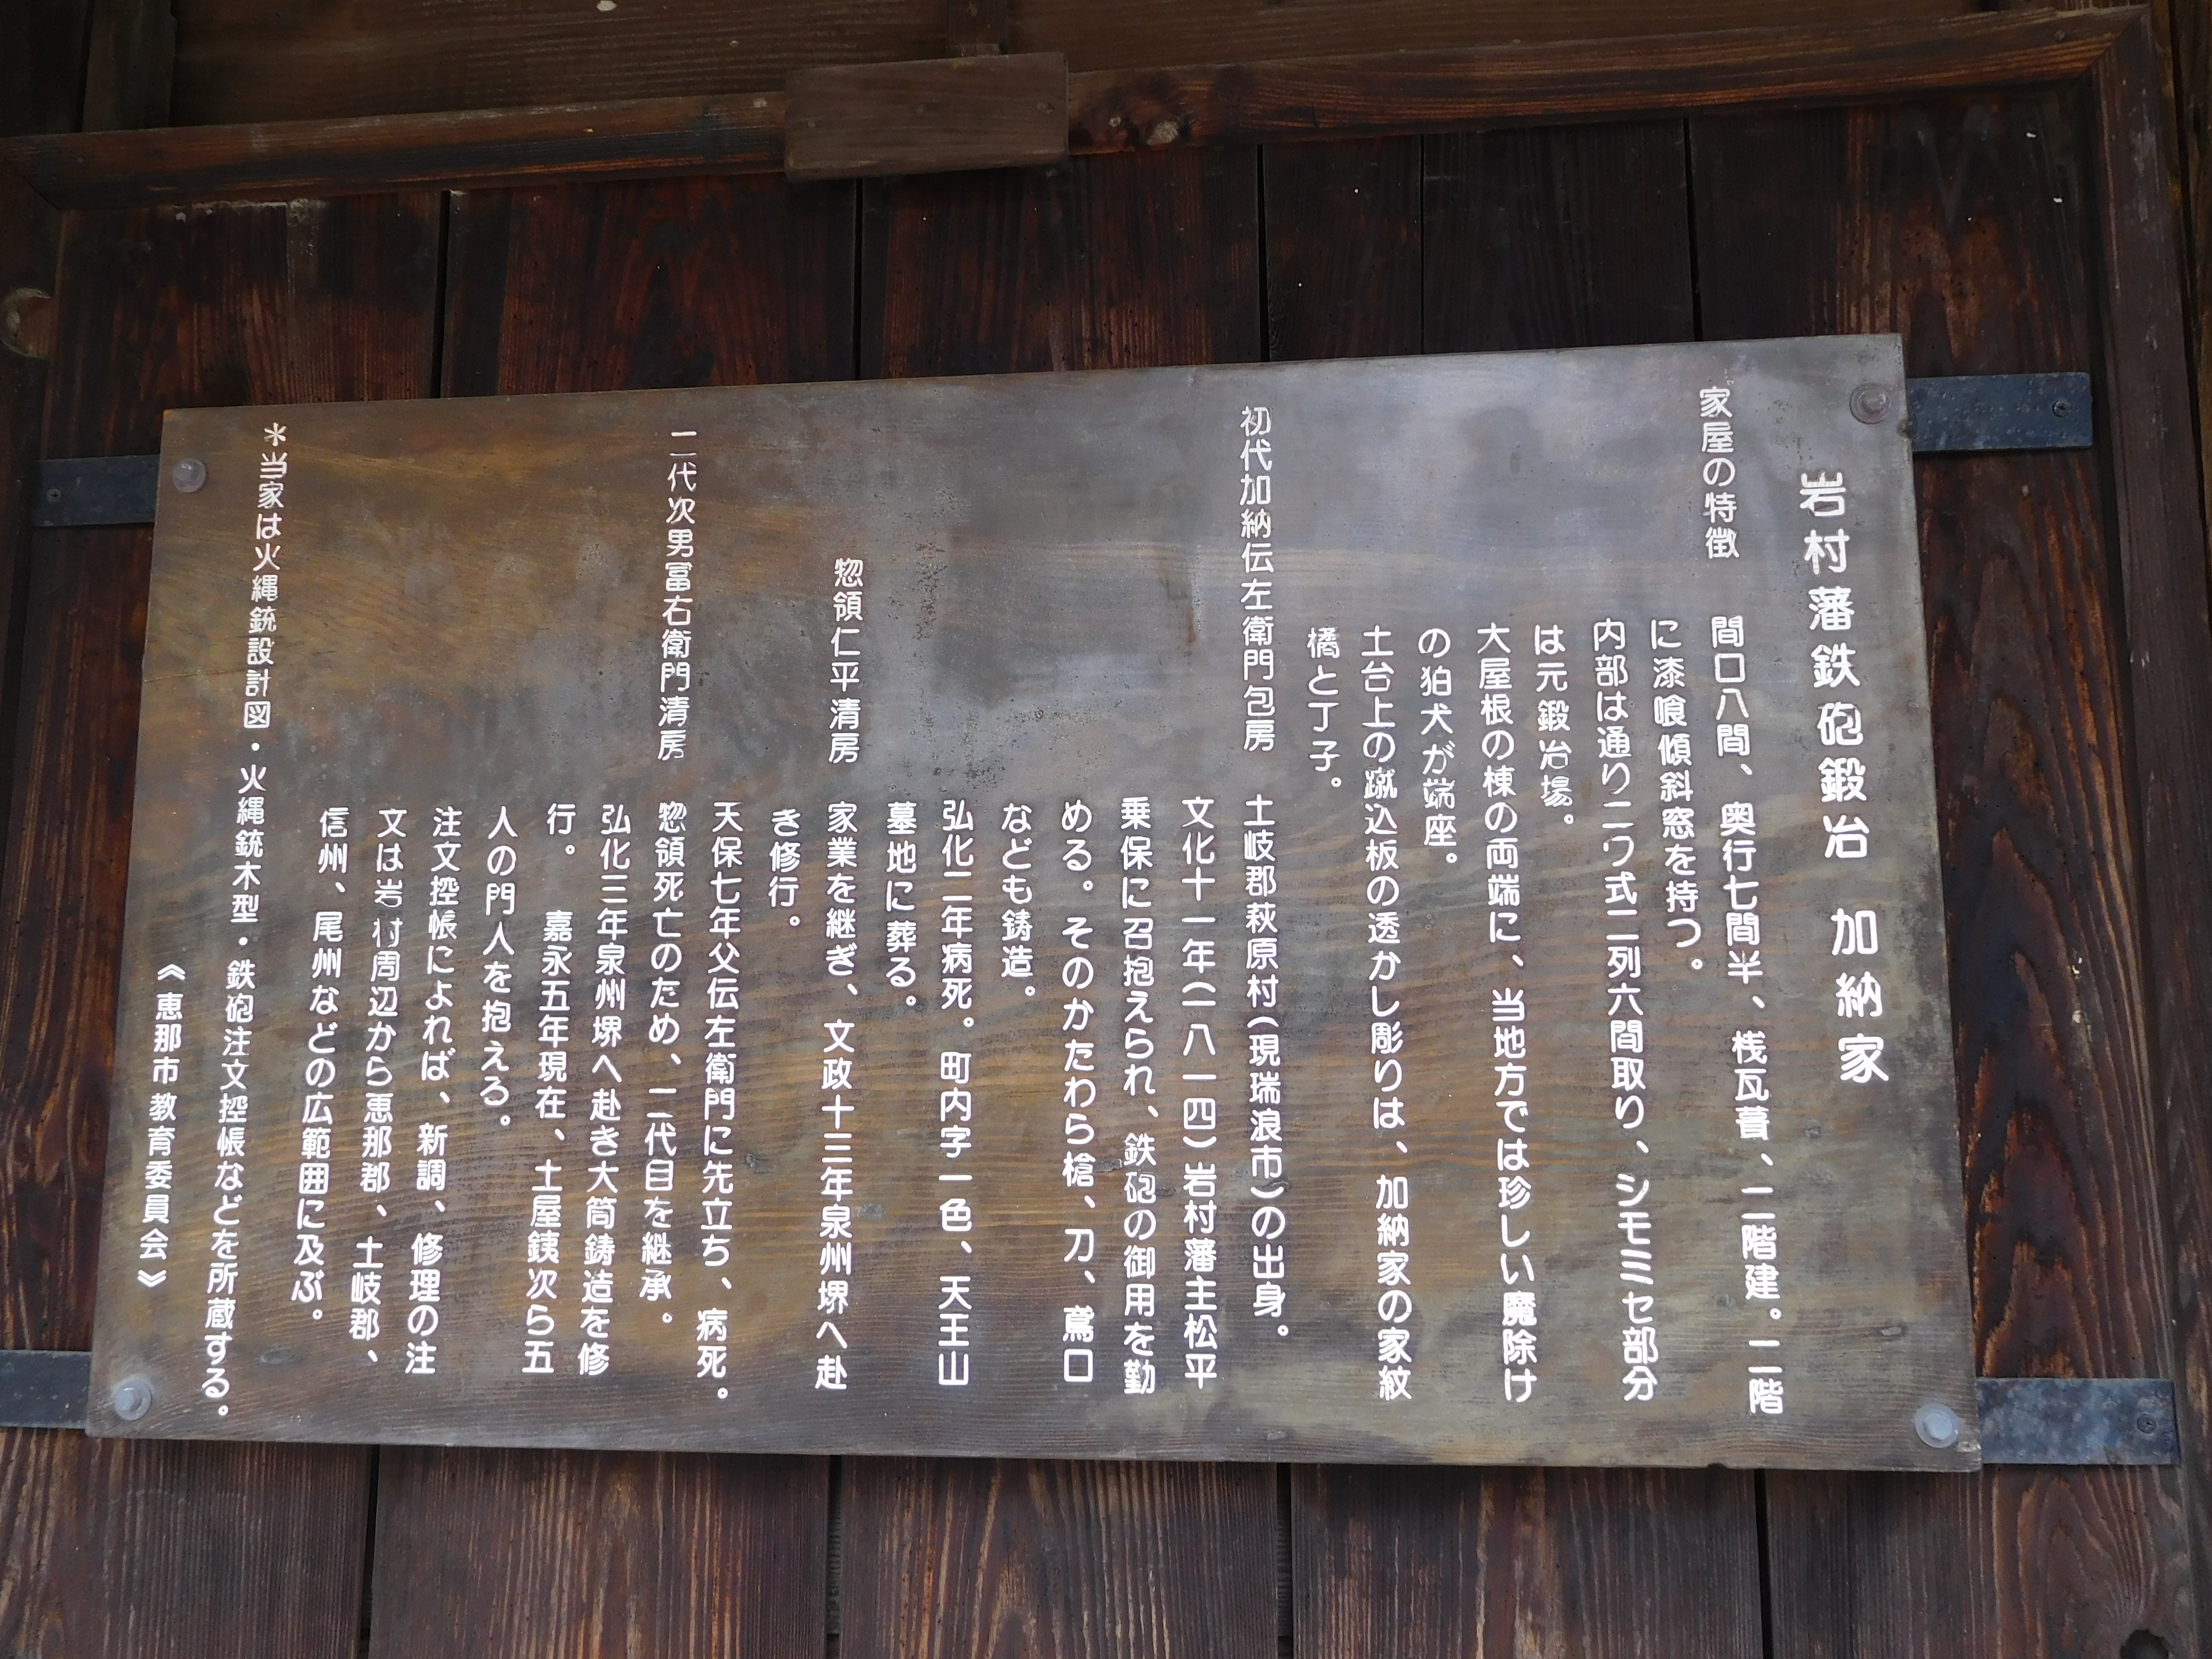 岩村藩鉄砲鍛冶　加納家
家屋の特徴　間口八間、奥行七間半、桟瓦葺、二階建。二階
に漆喰傾斜窓を持つ。
内部は通りニワ式二列六間取り、シモミセ部分
は元鍛冶場。
大屋根の棟の両端に、当地方では珍しい魔除け
の狛犬が端座。
土台上の蹴込板の透かし彫りは、加納家の家紋
橘と丁子。
初代加納伝左衛門包房　土岐郡萩原村(現瑞浪市)の出身。
文化十一年(一八一四)岩村藩主松平
乗保に召抱えられ、鉄砲の御用を勤
める。そのかたわら槍、刀、鳶口
なども鋳造。
弘化二年病死。町内字一色、天王山
墓地に葬る。
惣領仁平清房　家業を継ぎ、文政十三年泉州堺へ赴
き修行。
天保七年父伝左衛門に先立ち、病死。
二代次男冨右衛門清房　惣領死亡のため、二代目を継承。
弘化三年泉州堺へ赴き大筒鋳造を修
行。　嘉永五年現在、土屋銕次ら五
人の門人を抱える。
注文控帳によれば、新調、修理の注
文は岩村周辺から恵那郡、土岐郡、
信州、尾州などの広範囲に及ぶ。
＊当家は火縄銃設計図・火縄銃木型・鉄砲注文控帳などを所蔵する。
《恵那市教育委員会》